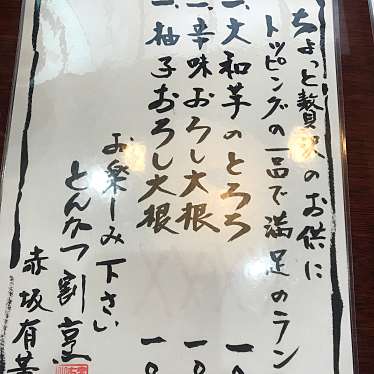 ちょっと贅沢のお供に
トッピングの一品で満足のラン
一、大和芋のとろろ
一、辛味おろし大根 一〇
一、柚子おろし大根 一〇
お楽しみ下さい
とんかつ割烹
赤坂有